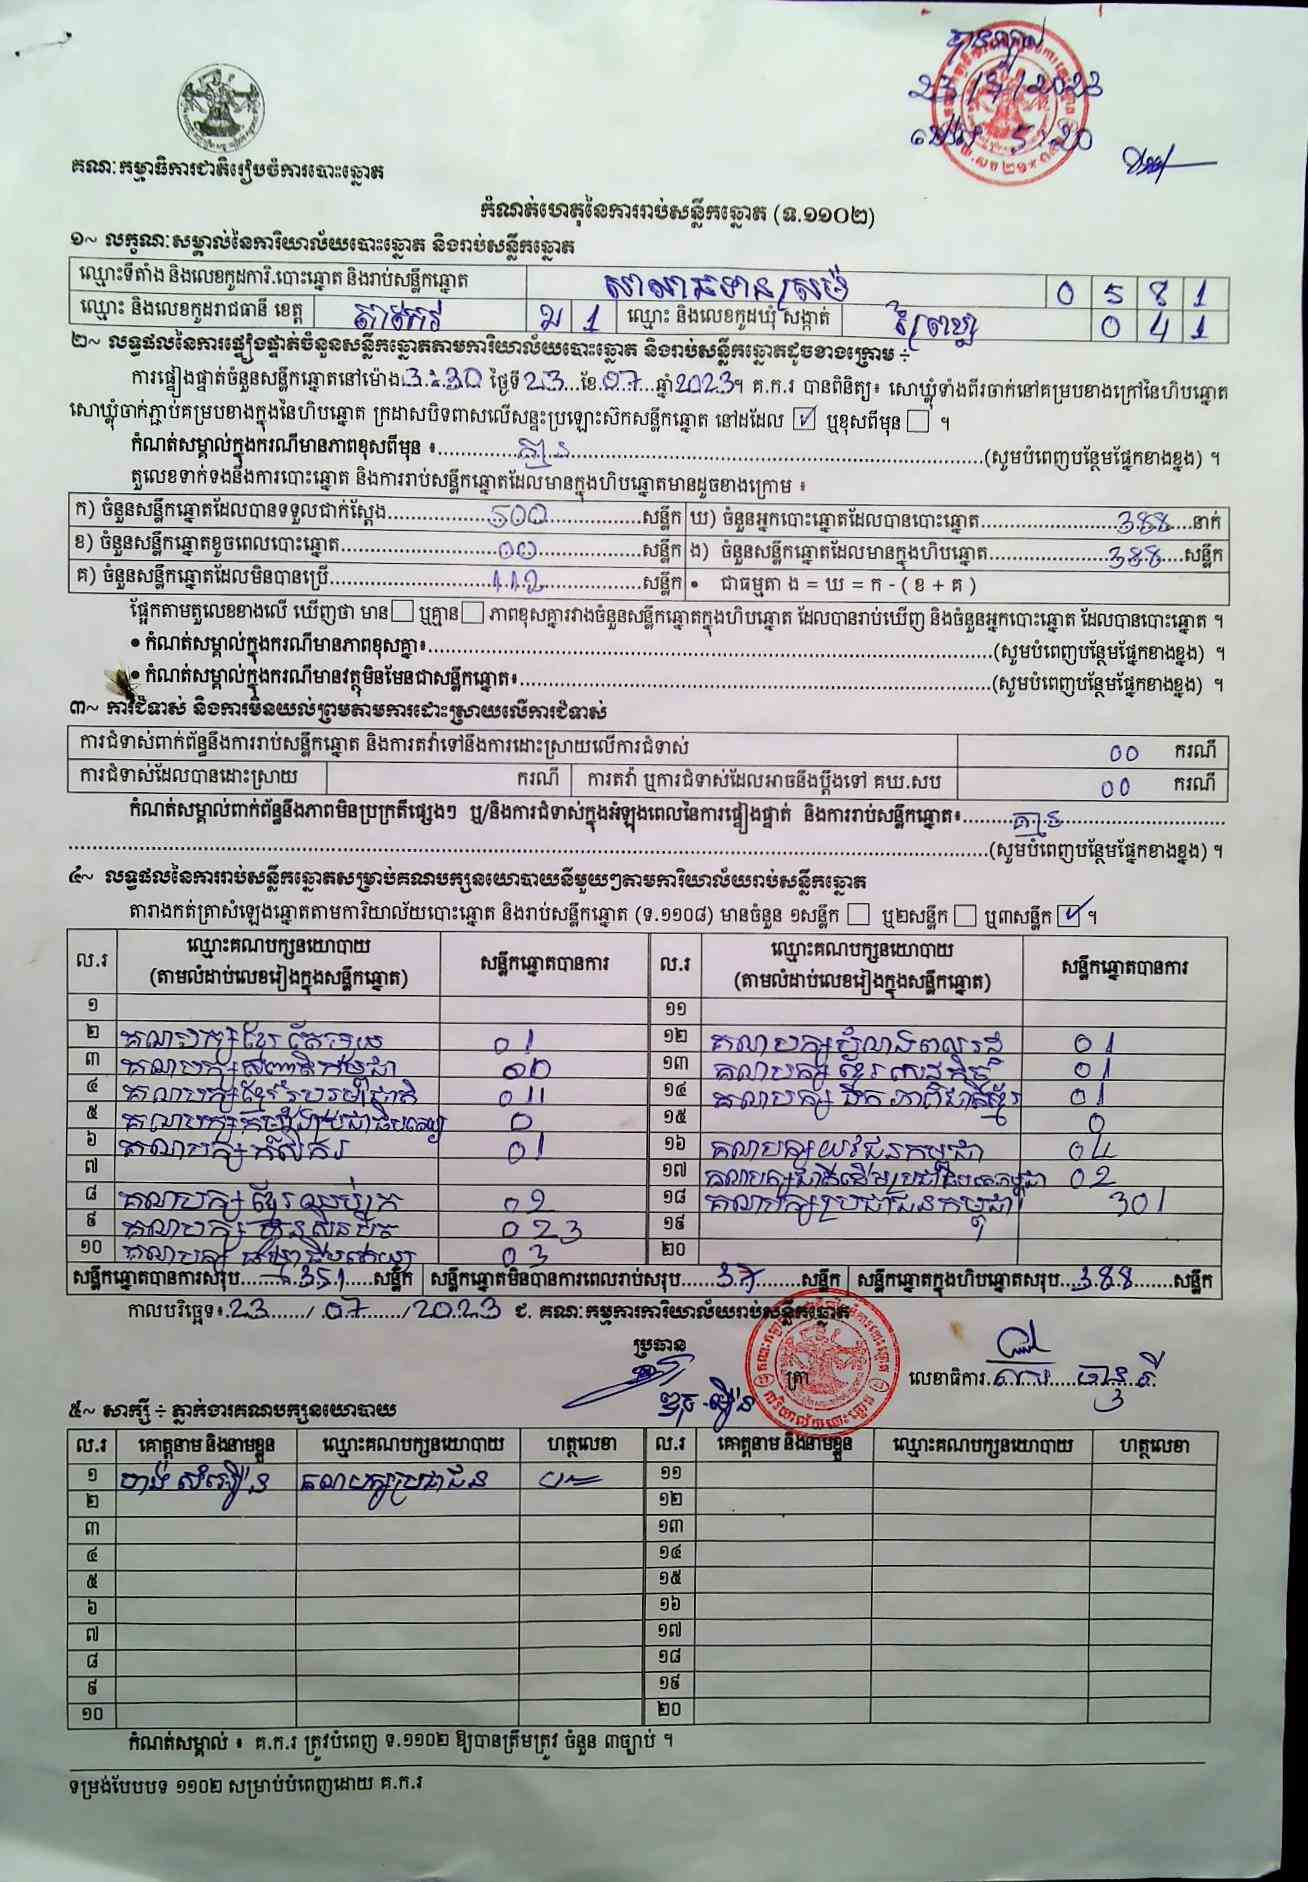 បានឃើញ
23/7/2023
ម៉ោង 5:20
គណៈកម្មាធិការជាតិរៀបចំការបោះឆ្នោត
កំណត់ហេតុនៃការរាប់សន្លឹកឆ្នោត (ទ.១១០២)
១~ លក្ខណៈសម្គាល់នៃការិយាល័យបោះឆ្នោត និងរាប់សន្លឹកឆ្នោត
ឈ្មោះទីតាំង និងលេខកូដការិ.បោះឆ្នោត និងរាប់សន្លឹកឆ្នោត សាលាឆទាន 0 5 8 1
ឈ្មោះ និងលេខកូដរាជធានី ខេត្ត តាកែវ ឃ 1 ឈ្មោះ និងលេខកូដឃុំ សង្កាត់ 0 4 1
២~ លទ្ធផលនៃការផ្ទៀងផ្ទាត់ចំនួនសន្លឹកឆ្នោតតាមការិយាល័យបោះឆ្នោត និងរាប់សន្លឹកឆ្នោតដូចខាងក្រោម ÷
ការផ្ទៀងផ្ទាត់ចំនួនសន្លឹកឆ្នោតនៅម៉ោង 3:30 ថ្ងៃទី 23 ខែ 07 ឆ្នាំ 2023។ គ.ក.រ បានពិនិត្យ៖ សោឃ្លុំទាំងពីរចាក់នៅគម្របខាងក្រៅនៃហិបឆ្នោត
សោឃ្លុំចាក់ភ្ជាប់គម្របខាងក្នុងនៃហិបឆ្នោត ក្រដាសបិទពាសលើសន្ទះប្រឡោះស៊កសន្លឹកឆ្នោត នៅដដែល ☑ ឬខុសពីមុន ☐ ។
កំណត់សម្គាល់ក្នុងករណីមានភាពខុសពីមុន ៖ គ្មាន (សូមបំពេញបន្ថែមផ្នែកខាងខ្នង) ។
តួលេខទាក់ទងនឹងការបោះឆ្នោត និងការរាប់សន្លឹកឆ្នោតដែលមានក្នុងហិបឆ្នោតមានដូចខាងក្រោម ៖
ក) ចំនួនសន្លឹកឆ្នោតដែលបានទទួលជាក់ស្តែង 500 សន្លឹក ឃ) ចំនួនអ្នកបោះឆ្នោតដែលបានបោះឆ្នោត 388 នាក់
ខ) ចំនួនសន្លឹកឆ្នោតខូចពេលបោះឆ្នោត 00 សន្លឹក ង) ចំនួនសន្លឹកឆ្នោតដែលមានក្នុងហិបឆ្នោត 388 សន្លឹក
គ) ចំនួនសន្លឹកឆ្នោតដែលមិនបានប្រើ 112 សន្លឹក • ជាធម្មតា ង = ឃ = ក - ( ខ + គ )
ផ្អែកតាមតួលេខខាងលើ ឃើញថា មាន ☐ ឬគ្មាន ☐ ភាពខុសគ្នារវាងចំនួនសន្លឹកឆ្នោតក្នុងហិបឆ្នោត ដែលបានរាប់ឃើញ និងចំនួនអ្នកបោះឆ្នោត ដែលបានបោះឆ្នោត ។
• កំណត់សម្គាល់ក្នុងករណីមានភាពខុសគ្នា៖ (សូមបំពេញបន្ថែមផ្នែកខាងខ្នង) ។
• កំណត់សម្គាល់ក្នុងករណីមានវត្ថុមិនមែនជាសន្លឹកឆ្នោត៖ (សូមបំពេញបន្ថែមផ្នែកខាងខ្នង) ។
៣~ ការជំទាស់ និងការមិនយល់ព្រមតាមការដោះស្រាយលើការជំទាស់
ការជំទាស់ពាក់ព័ន្ធនឹងការរាប់សន្លឹកឆ្នោត និងការតវ៉ាទៅនឹងការដោះស្រាយលើការជំទាស់ 00 ករណី
ការជំទាស់ដែលបានដោះស្រាយ ករណី ការតវ៉ា ឬការជំទាស់ដែលអាចនឹងប្តឹងទៅ គឃ.សប 00 ករណី
កំណត់សម្គាល់ពាក់ព័ន្ធនឹងភាពមិនប្រក្រតីផ្សេងៗ ឬ/និងការជំទាស់ក្នុងអំឡុងពេលនៃការផ្ទៀងផ្ទាត់ និងការរាប់សន្លឹកឆ្នោត៖ គ្មាន
(សូមបំពេញបន្ថែមផ្នែកខាងខ្នង) ។
៤~ លទ្ធផលនៃការរាប់សន្លឹកឆ្នោតសម្រាប់គណបក្សនយោបាយនីមួយៗតាមការិយាល័យរាប់សន្លឹកឆ្នោត
តារាងកត់ត្រាសំឡេងឆ្នោតតាមការិយាល័យបោះឆ្នោត និងរាប់សន្លឹកឆ្នោត (ទ.១១០៨) មានចំនួន ១សន្លឹក ☐ ឬ២សន្លឹក ☐ ឬ៣សន្លឹក ☑ ។
ល.រ ឈ្មោះគណបក្សនយោបាយ (តាមលំដាប់លេខរៀងក្នុងសន្លឹកឆ្នោត) សន្លឹកឆ្នោតបានការ ល.រ ឈ្មោះគណបក្សនយោបាយ (តាមលំដាប់លេខរៀងក្នុងសន្លឹកឆ្នោត) សន្លឹកឆ្នោតបានការ
១ ១១
២ គណបក្សខ្មែរតែមួយ 01 ១២ គណបក្សកម្លាំងពលរដ្ឋ 01
៣ គណបក្សសញ្ជាតិកម្ពុជា 00 ១៣ គណបក្សខ្មែរសេដ្ឋកិច្ច 01
៤ គណបក្សខ្មែររួបរួមជាតិ 011 ១៤ គណបក្សឯកភាពជាតិខ្មែរ 01
៥ គណបក្សកម្លាំងប្រជាធិបតេយ្យ 0 ១៥ 0
៦ គណបក្សកសិករ 01 ១៦ គណបក្សយុវជនកម្ពុជា 04
៧ ១៧ គណបក្សជាតិដើមប្រជាធិបតេយ្យកម្ពុជា 02
៨ គណបក្សខ្មែរឈប់ក្រ 02 ១៨ គណបក្សប្រជាជនកម្ពុជា 301
៩ គណបក្សហ្វ៊ុនស៊ិនប៉ិច 023 ១៩
១០ គណបក្ស 03 ២០
សន្លឹកឆ្នោតបានការសរុប 351 សន្លឹក សន្លឹកឆ្នោតមិនបានការពេលរាប់សរុប 37 សន្លឹក សន្លឹកឆ្នោតក្នុងហិបឆ្នោតសរុប 388 សន្លឹក
កាលបរិច្ឆេទ៖ 23 / 07 / 2023 ជ. គណៈកម្មការការិយាល័យរាប់សន្លឹកឆ្នោត
ប្រធាន
ត្រា លេខាធិការ
៥~ សាក្សី ÷ ភ្នាក់ងារគណបក្សនយោបាយ
ល.រ គោត្តនាម និងនាមខ្លួន ឈ្មោះគណបក្សនយោបាយ ហត្ថលេខា ល.រ គោត្តនាម និងនាមខ្លួន ឈ្មោះគណបក្សនយោបាយ ហត្ថលេខា
១ ហង់ សំអឿន គណបក្សប្រជាជន ១១
២ ១២
៣ ១៣
៤ ១៤
៥ ១៥
៦ ១៦
៧ ១៧
៨ ១៨
៩ ១៩
១០ ២០
កំណត់សម្គាល់ ៖ គ.ក.រ ត្រូវបំពេញ ទ.១១០២ ឱ្យបានត្រឹមត្រូវ ចំនួន ៣ច្បាប់ ។
ទម្រង់បែបបទ ១១០២ សម្រាប់បំពេញដោយ គ.ក.រ